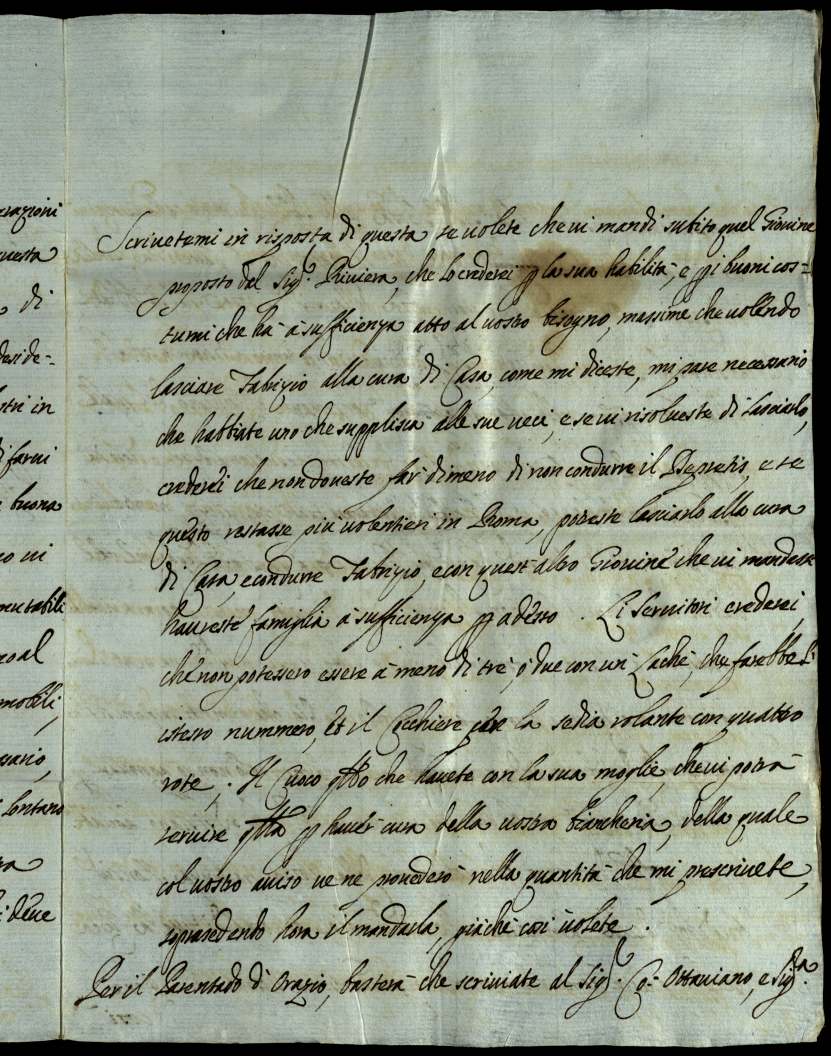 razioni
uesta
di
deside=
stri in
farui
buona
ui
mutabili
al
mobili,
sario,
Lontano
deue
Scriuetemi in risposta di questa se uolete che ui mandi subito quel Giouine
proposto dal Sig.r Riviera, che lo crederei p la sua habilità, e p i buoni cos=
tumi che hà à sufficienza atto al uostro bisogno, massime che uolendo
lasciare Fabrizio alla cura di Casa, come mi diceste, mi pare necessario
che habbiate uno che supplisca alle sue ueci, e se ui risolueste di lasciarlo,
crederei che non doueste far dimeno di non condurre il Depretis, e se
questo restasse più uolentieri in Roma, poteste lasciarlo alla cura
di Casa, e condurre Fabrizio, e con quest'altro Giouine che ui mandassi
haureste famiglia à sufficienza p adesso. Li Seruitori crederei,
che non potessero essere à meno di trè, ò due con un Lachè, che farebbe l'
istesso nummero, et il Cocchiere la sedia uolante con quattro
rote,. Il Cuoco qtto che hauete con la sua moglie, che ui potrà
seruire qtta p hauer cura della uostra biancheria, della quale
col uostro auiso ue ne prouederò nella quantità che mi prescriuete,
soprasedendo hora il mandarla, giàche così uolete.
Per il Parentado di Orazio, basterà che scriuiate al Sig.r Co: Ottauiano, e Sig.ra